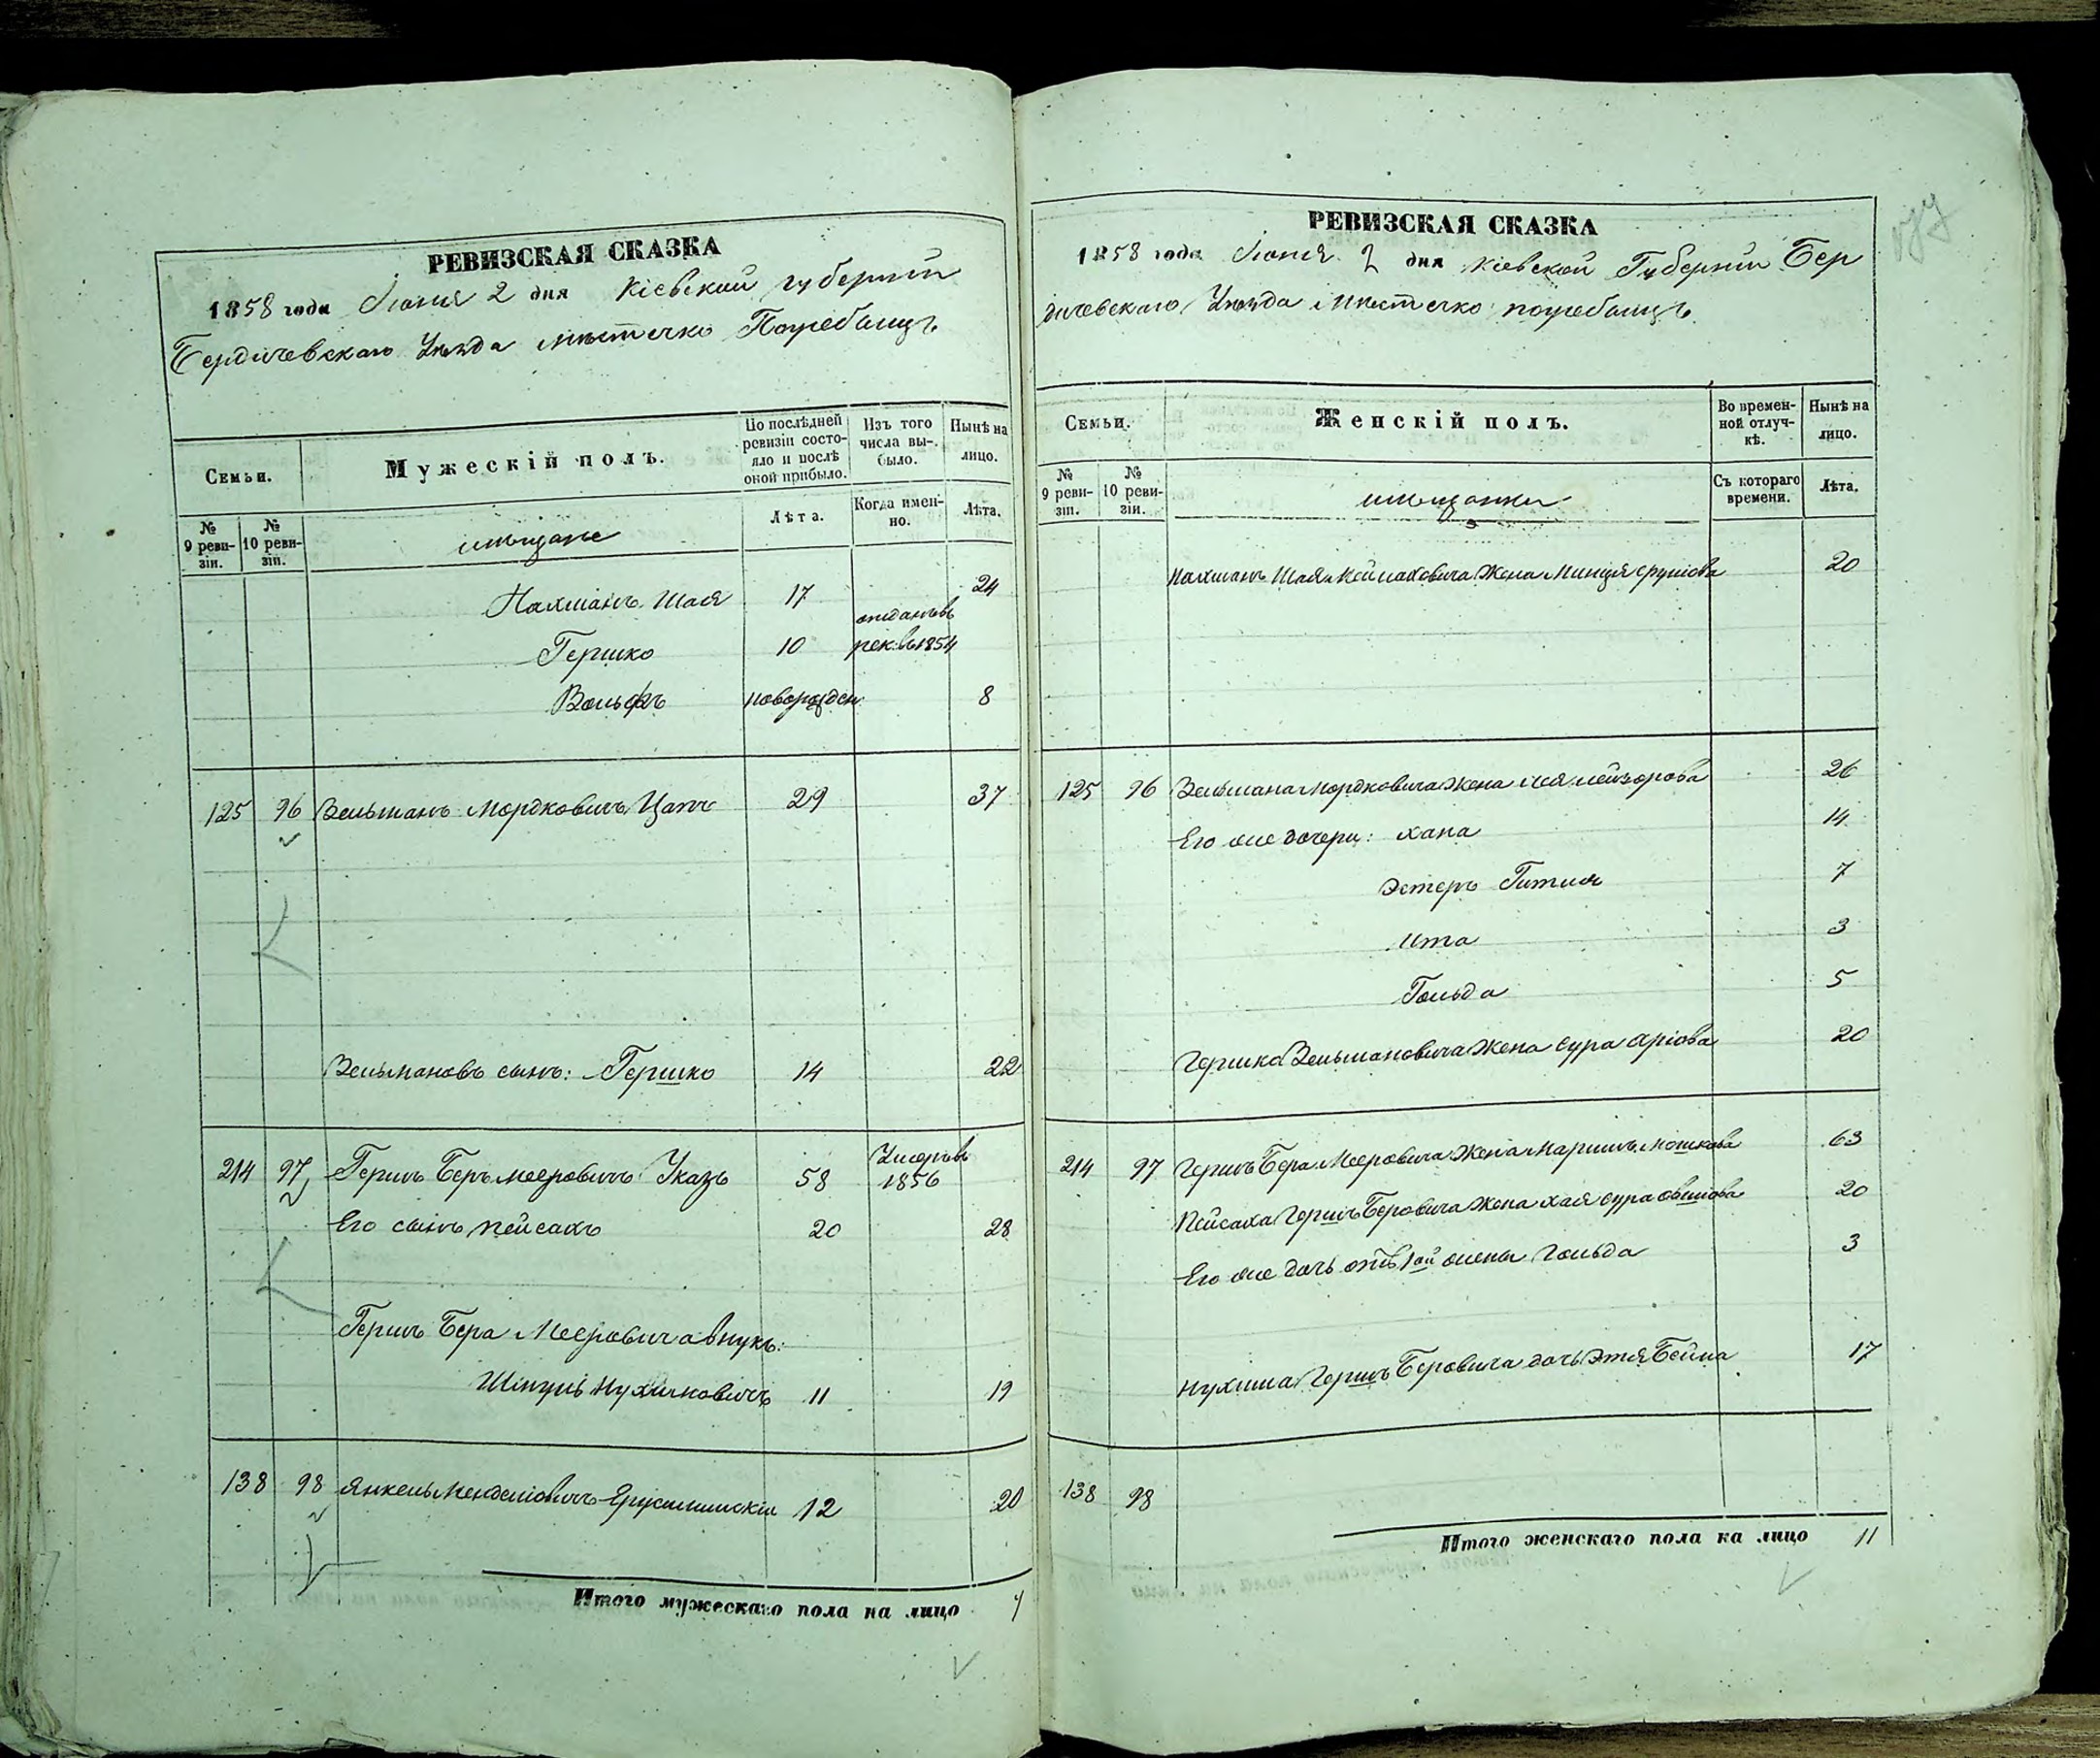 РЕВИЗСКАЯ СКАЗКА
1858 года Іюня 2 дня Кіевской губерніи
Бердичевскаго Уѣзда мѣстечко Погребищъ
Семьи.
Мужескій полъ.
По послѣдней ревизіи состояло и послѣ оной прибыло.
Изъ того числа выбыло.
Нынѣ на лицо.
№ 9 ревизіи.
№ 10 ревизіи.
мѣщане
Лѣта.
Когда именно.
Лѣта.
Нахманъ Шая 17 24
Гершко 10 отданъ въ рек. въ 1854
Вольфъ новорожден 8
125 96 Зельманъ Мордковичъ Цапъ 29 37
Зельмановъ сынъ: Гершко 14 22
214 97 Гершъ Беръ Мееровичъ Указъ 58 Умеръ въ 1856
Его сынъ Пейсахъ 20 28
Гершъ Бера Мееровича внукъ:
Шмуль Нухимовичъ 11 19
138 98 Янкель Менделіовичъ Ерусалимскій 12 20
Итого мужескаго пола на лицо 7
РЕВИЗСКАЯ СКАЗКА
1858 года Іюня 2 дня Кіевской Губерніи Бер
дичевскаго Уѣзда Мѣстечко погребищъ
Семьи.
Женскій полъ.
Во временной отлучкѣ.
Нынѣ на лицо.
№ 9 ревизіи.
№ 10 ревизіи.
мѣщанки
Съ котораго времени.
Лѣта.
Нахманъ Шая жена Минця Сруліова 20
125 96 Зельмана Мордковича жена Лея Лейзорова 26
Его же дочери: Хана 14
Эстеръ Гитля 7
Ита 3
Гольда 5
Гершка Зельмановича жена Сура Аріова 20
214 97 Гершъ Бера Мееровича жена Маришъ Мошкова 63
Пейсаха Гершъ Беровича жена Хая Сура Овшіова 20
Его же дочь отъ 1ой жены Гольда 3
Нухима Гершъ Беровича дочь Этя Бейла 17
138 98
Итого женскаго пола на лицо 11